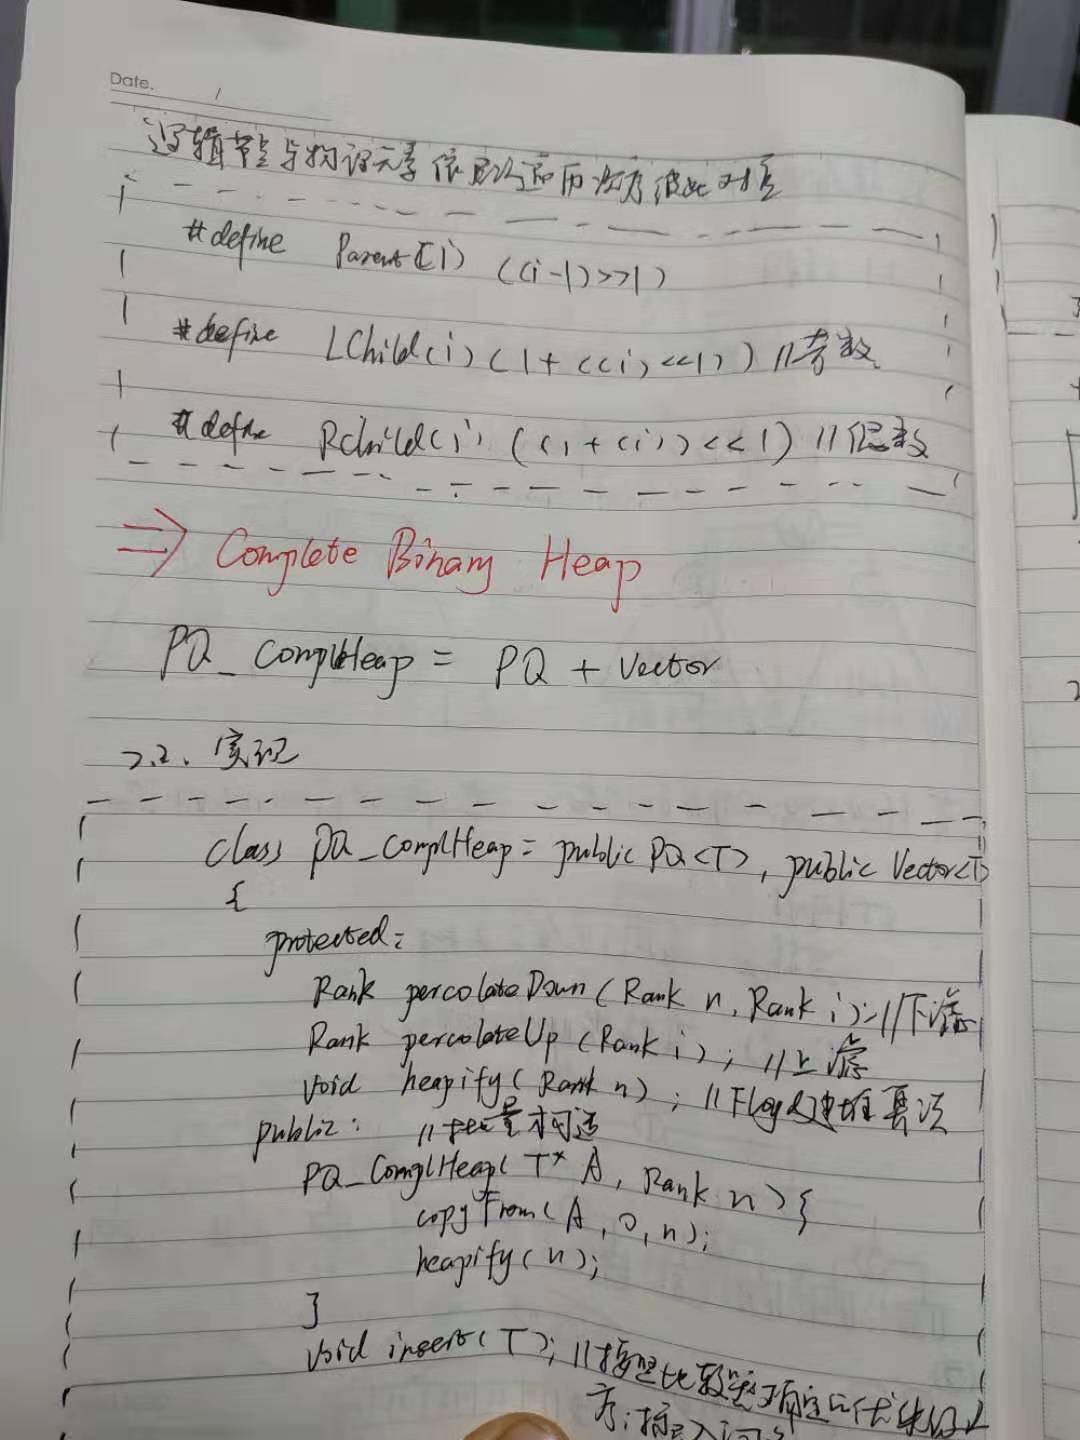 Date.
逻辑节点与物理元素依照次遍历次序彼此对应
#define Parent(i) ((i-1)>>1)
#define LChild(i) (1+((i)<<1)) //奇数
#define RChild(i) ((1+(i))<<1) //偶数
⇒ Complete Binary Heap
PQ_ComplHeap = PQ + Vector
2.2. 实现
class PQ_ComplHeap : public PQ<T>, public Vector<T>
{
protected:
Rank percolateDown(Rank n, Rank i); //下滤
Rank percolateUp(Rank i); //上滤
void heapify(Rank n); //Floyd建堆算法
public: //批量构造
PQ_ComplHeap(T* A, Rank n) {
copyFrom(A, 0, n);
heapify(n);
}
void insert(T); //按照比较器确定的优先级次
序,插入词条